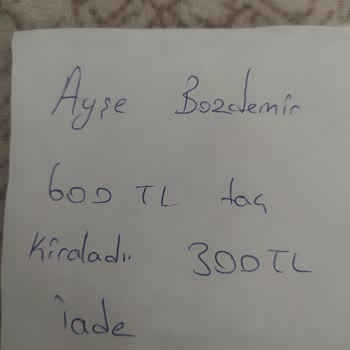 Ayşe Bozdemir
600 TL taç
Kiraladı 300 TL
İade